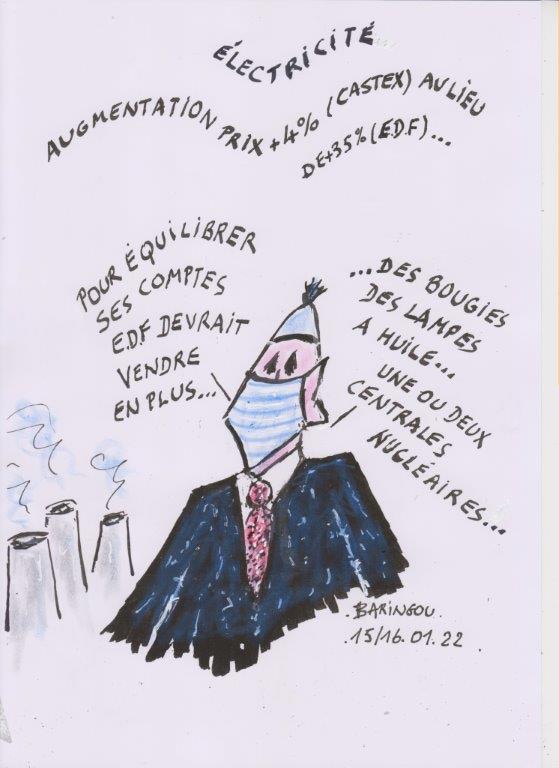 ÉLECTRICITÉ...
AUGMENTATION PRIX +4% (CASTEX) AU LIEU
DE +35% (E.D.F)...
POUR ÉQUILIBRER
SES COMPTES
E.D.F DEVRAIT
VENDRE
EN PLUS...
...DES BOUGIES
DES LAMPES
A HUILE...
UNE OU DEUX
CENTRALES
NUCLÉAIRES...
.BARINGOU.
.15/16.01.22